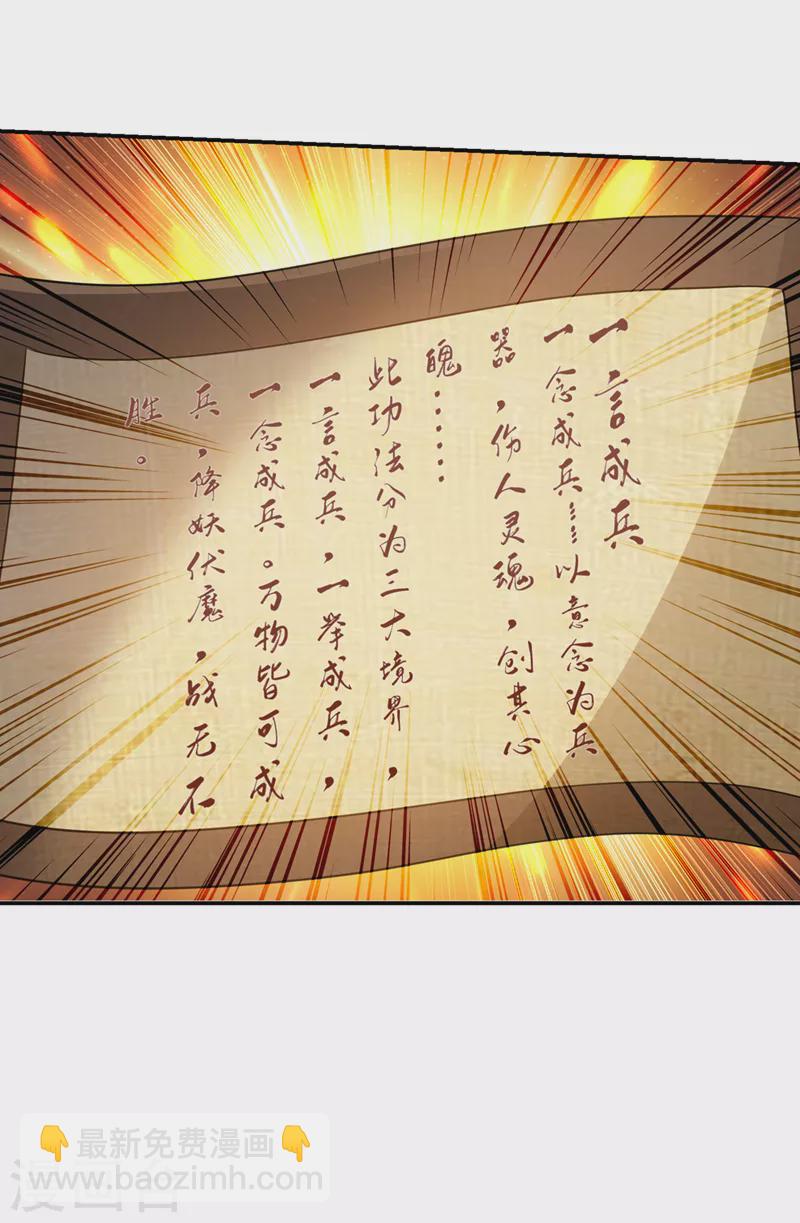 一言成兵
一念成兵……以意念为兵
器，伤人灵魂，创其心
魄……
此功法分为三大境界，
一言成兵，一举成兵，
一念成兵。万物皆可成
兵，降妖伏魔，战无不
胜。
👇最新免费漫画👇
www.baozimh.com
漫画台